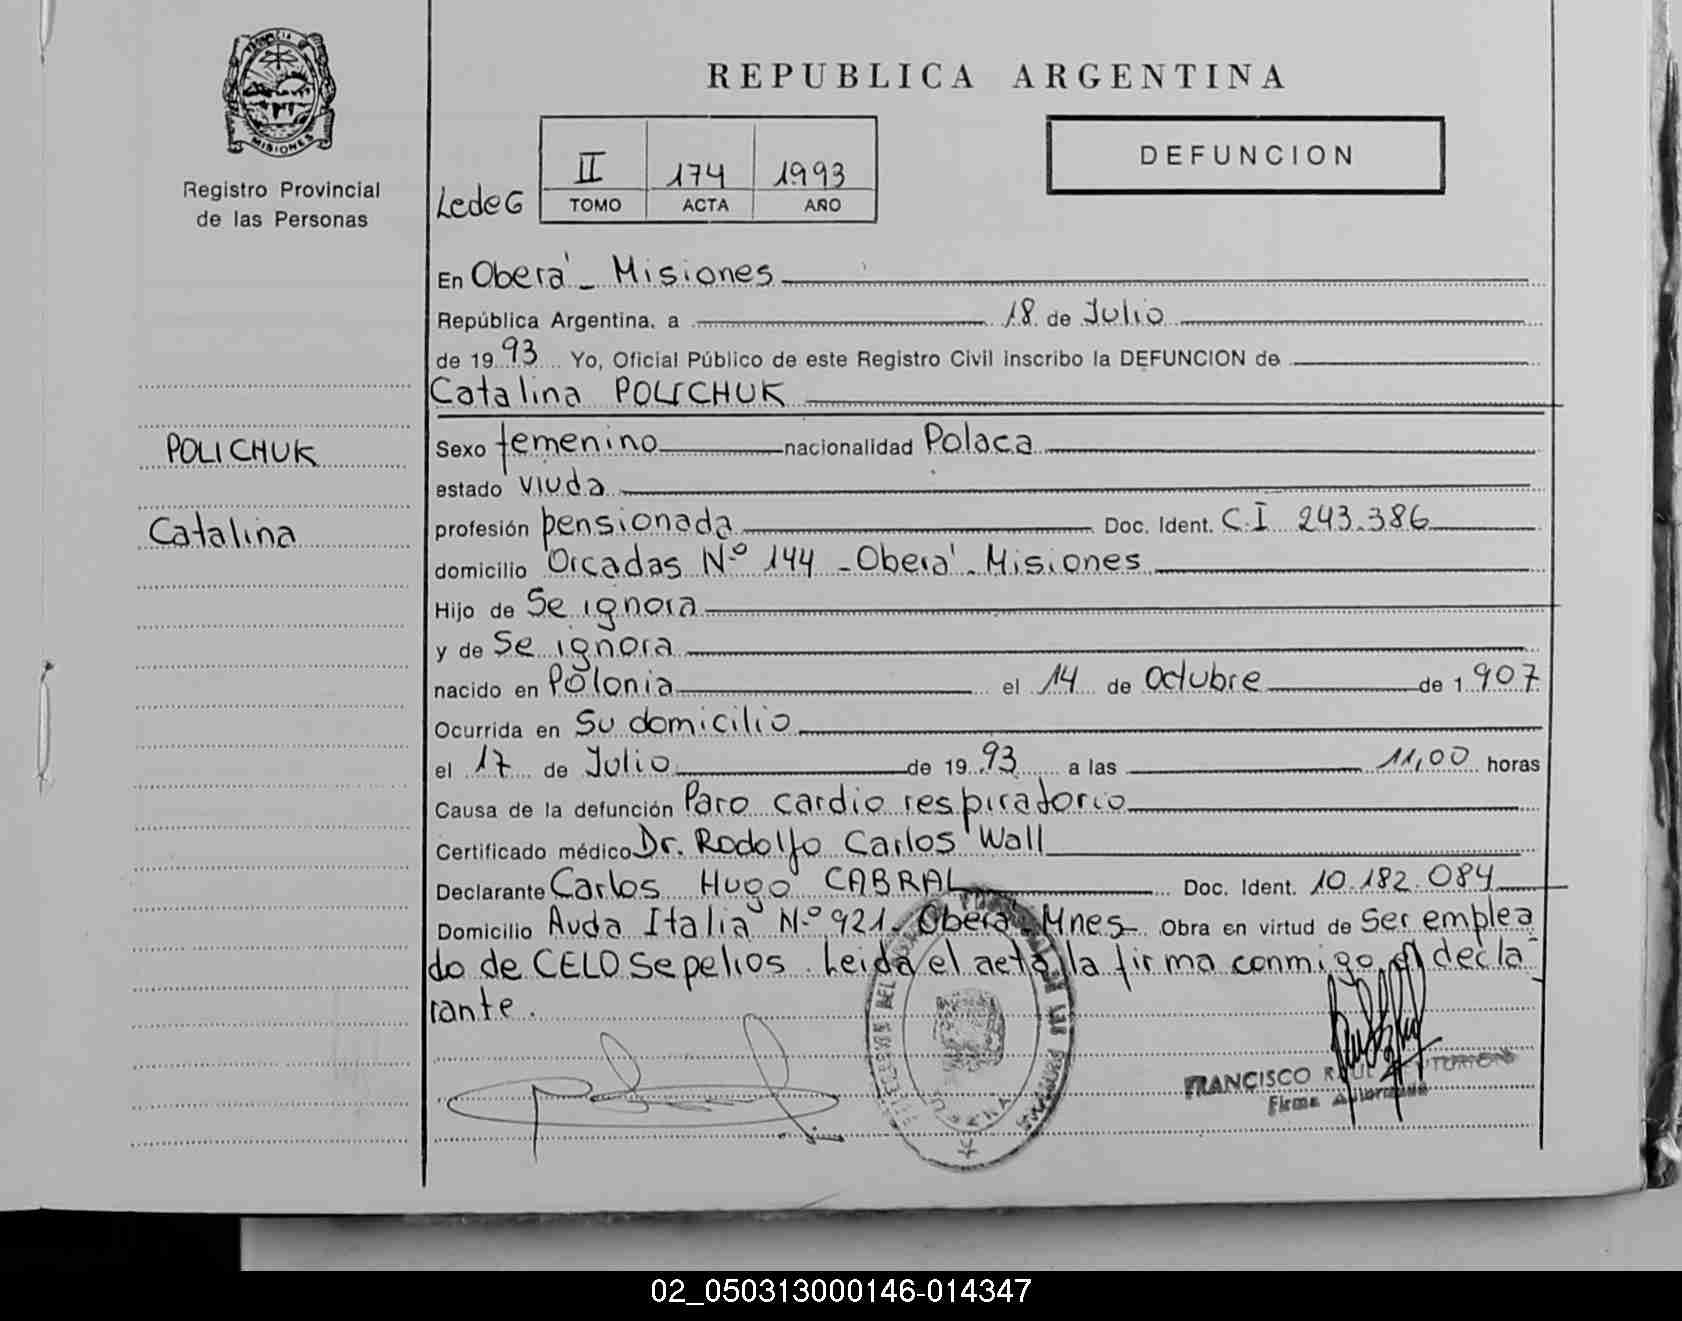 PROVINCIA DE
MISIONES
Registro Provincial
de las Personas
REPUBLICA ARGENTINA
DEFUNCION
LedeG
II 174 1993
TOMO ACTA AÑO
En Oberá - Misiones
República Argentina, a 18 de Julio
de 19 93 Yo, Oficial Público de este Registro Civil inscribo la DEFUNCION de
Catalina POLICHUK
POLICHUK
Catalina
Sexo femenino nacionalidad Polaca
estado viuda
profesión pensionada Doc. Ident. C.I 243.386
domicilio Orcadas Nº 144 - Oberá - Misiones
Hijo de Se ignora
y de Se ignora
nacido en Polonia el 14 de Octubre de 1.907
Ocurrida en Su domicilio
el 17 de Julio de 19 93 a las 11,00 horas
Causa de la defunción Paro cardio respiratorio
Certificado médico Dr. Rodolfo Carlos Wall
Declarante Carlos Hugo CABRAL Doc. Ident. 10.182.084
Domicilio Avda Italia Nº 921 - Oberá - Mnes Obra en virtud de Ser emplea
do de CELO Sepelios. Leida el acta la firma conmigo el decla-
rante.
FRANCISCO RAUL
Firma Autorizada
02_050313000146-014347